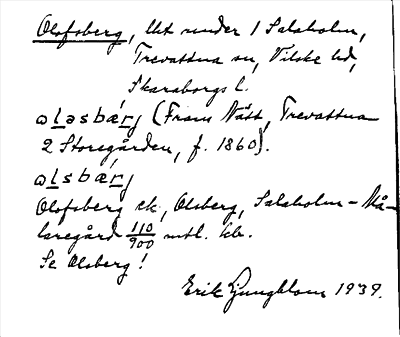 Olofsberg, lht under 1 Salaholm,
Trevattna sn, Vilske hd,
Skaraborgs l.
ɷləsbærj (Frans Nätt, Trevattna
2 Storegården, f. 1860).
ɷlsbærj
Olofsberg ek, Olsberg, Salaholm - Må-
laregård 110/900 mtl. kb.
Se Olsberg!
Erik Ljungblom 1939.